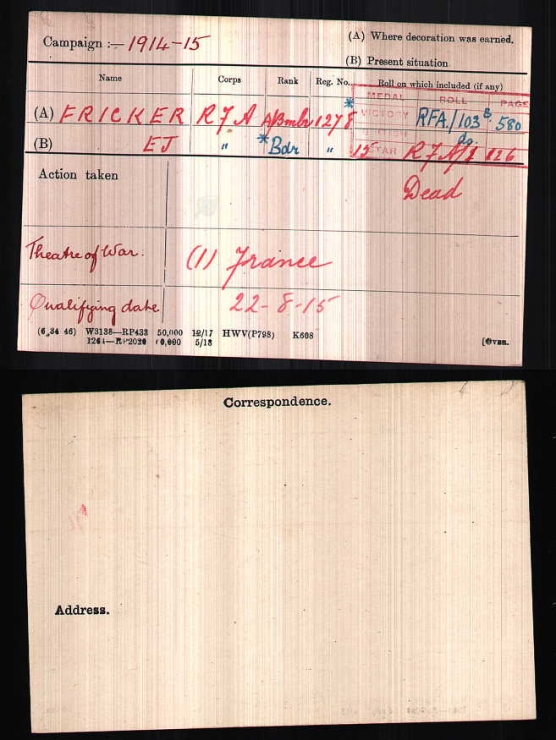 Campaign :— 1914-15
(A) Where decoration was earned.
(B) Present situation
Name Corps Rank Reg. No. Roll on which included (if any)
MEDAL ROLL PAGE
(A) FRICKER R F A A/Bmbr 1278 * VICTORY RFA/103 B 580
do
(B) EJ " * Bdr " 15 STAR 126
Action taken
Dead
Theatre of War. (1) France
Qualifying date 22-8-15
(6 34 46) W3138—RP433 50,000 12/17 HWV(P798) K608
5/18 (OVER.
Correspondence.
Address.